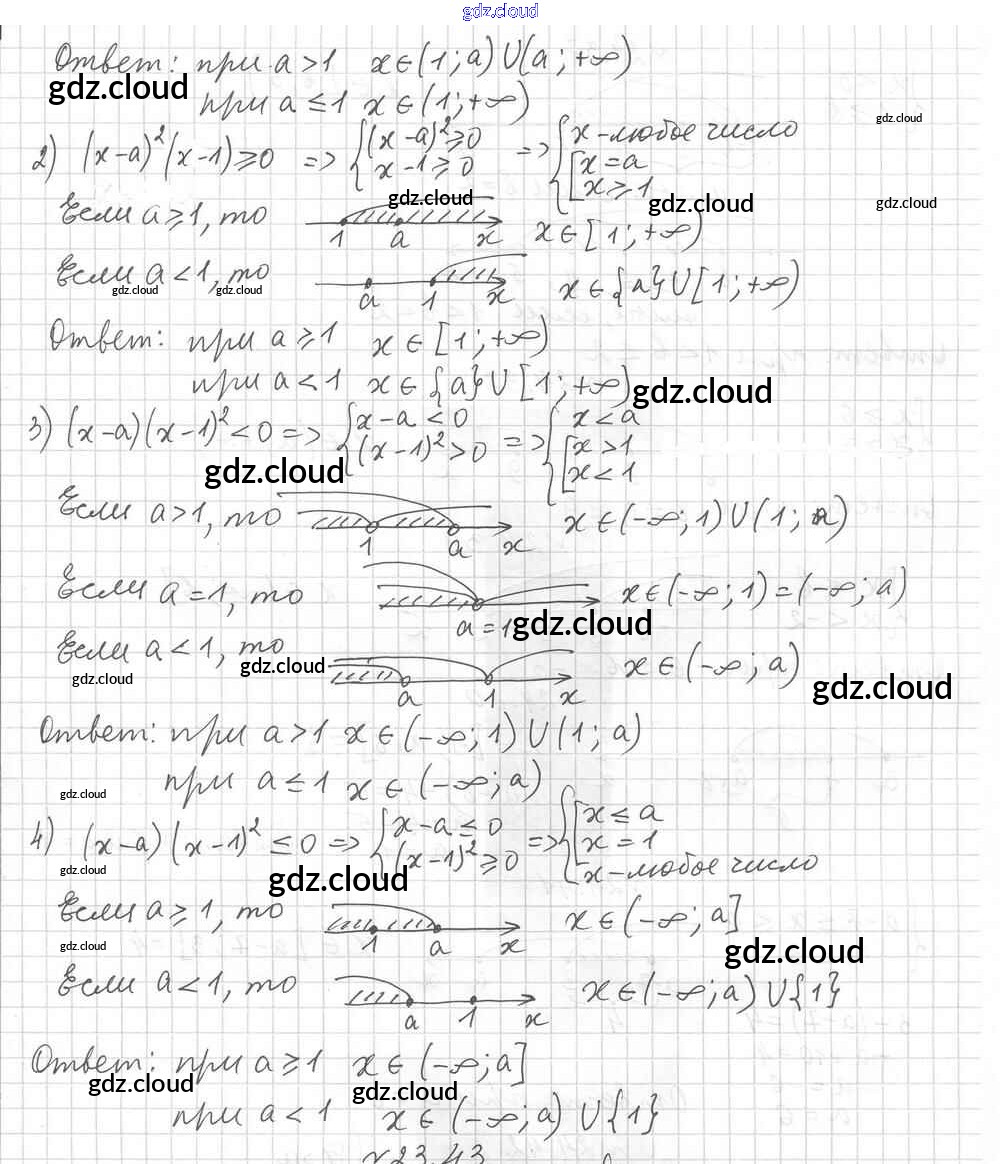 gdz.cloud
Ответ: при a > 1 x ∈ (1; a) ∪ (a; +∞)
gdz.cloud
при a ≤ 1 x ∈ (1; +∞)
gdz.cloud
2) (x-a)²(x-1) ≥ 0 => { (x-a)² ≥ 0 => { x - любое число
x-1 ≥ 0 [ x = a
x ≥ 1
gdz.cloud gdz.cloud gdz.cloud
Если a ≥ 1, то 1 a x x ∈ [1; +∞)
Если a < 1, то a 1 x x ∈ {a} ∪ [1; +∞)
gdz.cloud gdz.cloud
Ответ: при a ≥ 1 x ∈ [1; +∞)
при a < 1 x ∈ {a} ∪ [1; +∞)
gdz.cloud
3) (x-a)(x-1)² < 0 => { x-a < 0 => { x < a
(x-1)² > 0 [ x > 1
x < 1
gdz.cloud
Если a > 1, то 1 a x x ∈ (-∞; 1) ∪ (1; a)
Если a = 1, то a = 1 x ∈ (-∞; 1) = (-∞; a)
gdz.cloud
Если a < 1, то a 1 x x ∈ (-∞; a)
gdz.cloud gdz.cloud gdz.cloud
Ответ: при a > 1 x ∈ (-∞; 1) ∪ (1; a)
при a ≤ 1 x ∈ (-∞; a)
gdz.cloud
4) (x-a)(x-1)² ≤ 0 => { x-a ≤ 0 => { [ x ≤ a
(x-1)² ≥ 0 x = 1
x - любое число
gdz.cloud gdz.cloud
Если a ≥ 1, то 1 a x x ∈ (-∞; a]
gdz.cloud gdz.cloud
Если a < 1, то a 1 x x ∈ (-∞; a) ∪ {1}
Ответ: при a ≥ 1 x ∈ (-∞; a]
gdz.cloud gdz.cloud
при a < 1 x ∈ (-∞; a) ∪ {1}
23.43